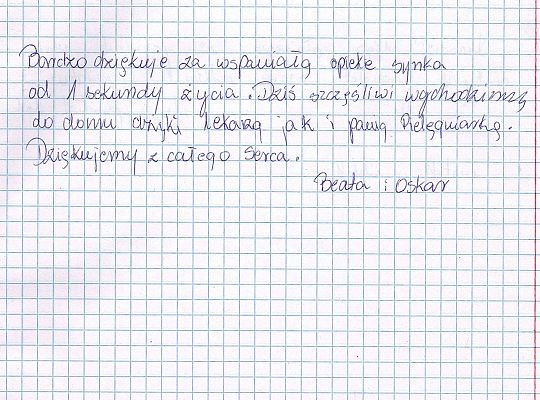 Bardzo dziękuje za wspaniałą opieke synka
od 1 sekundy życia. Dziś szczęśliwi wychodzimy
do domu dzięki lekarzą jak i panią Pielęgniarką.
Dziękujemy z całego Serca.
Beata i Oskar